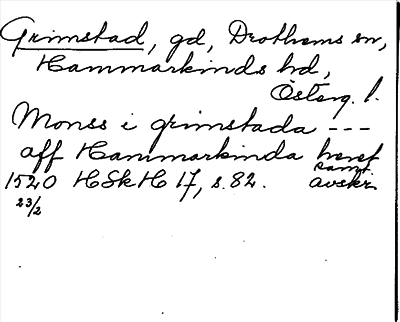 Grimstad, gd, Drothems sn,
Hammarkinds hd,
Österg. l.
Monss i grimstada ---
aff Hammarkinda heret
1520 HSkH 17, s. 82. samt. avskr.
23/2